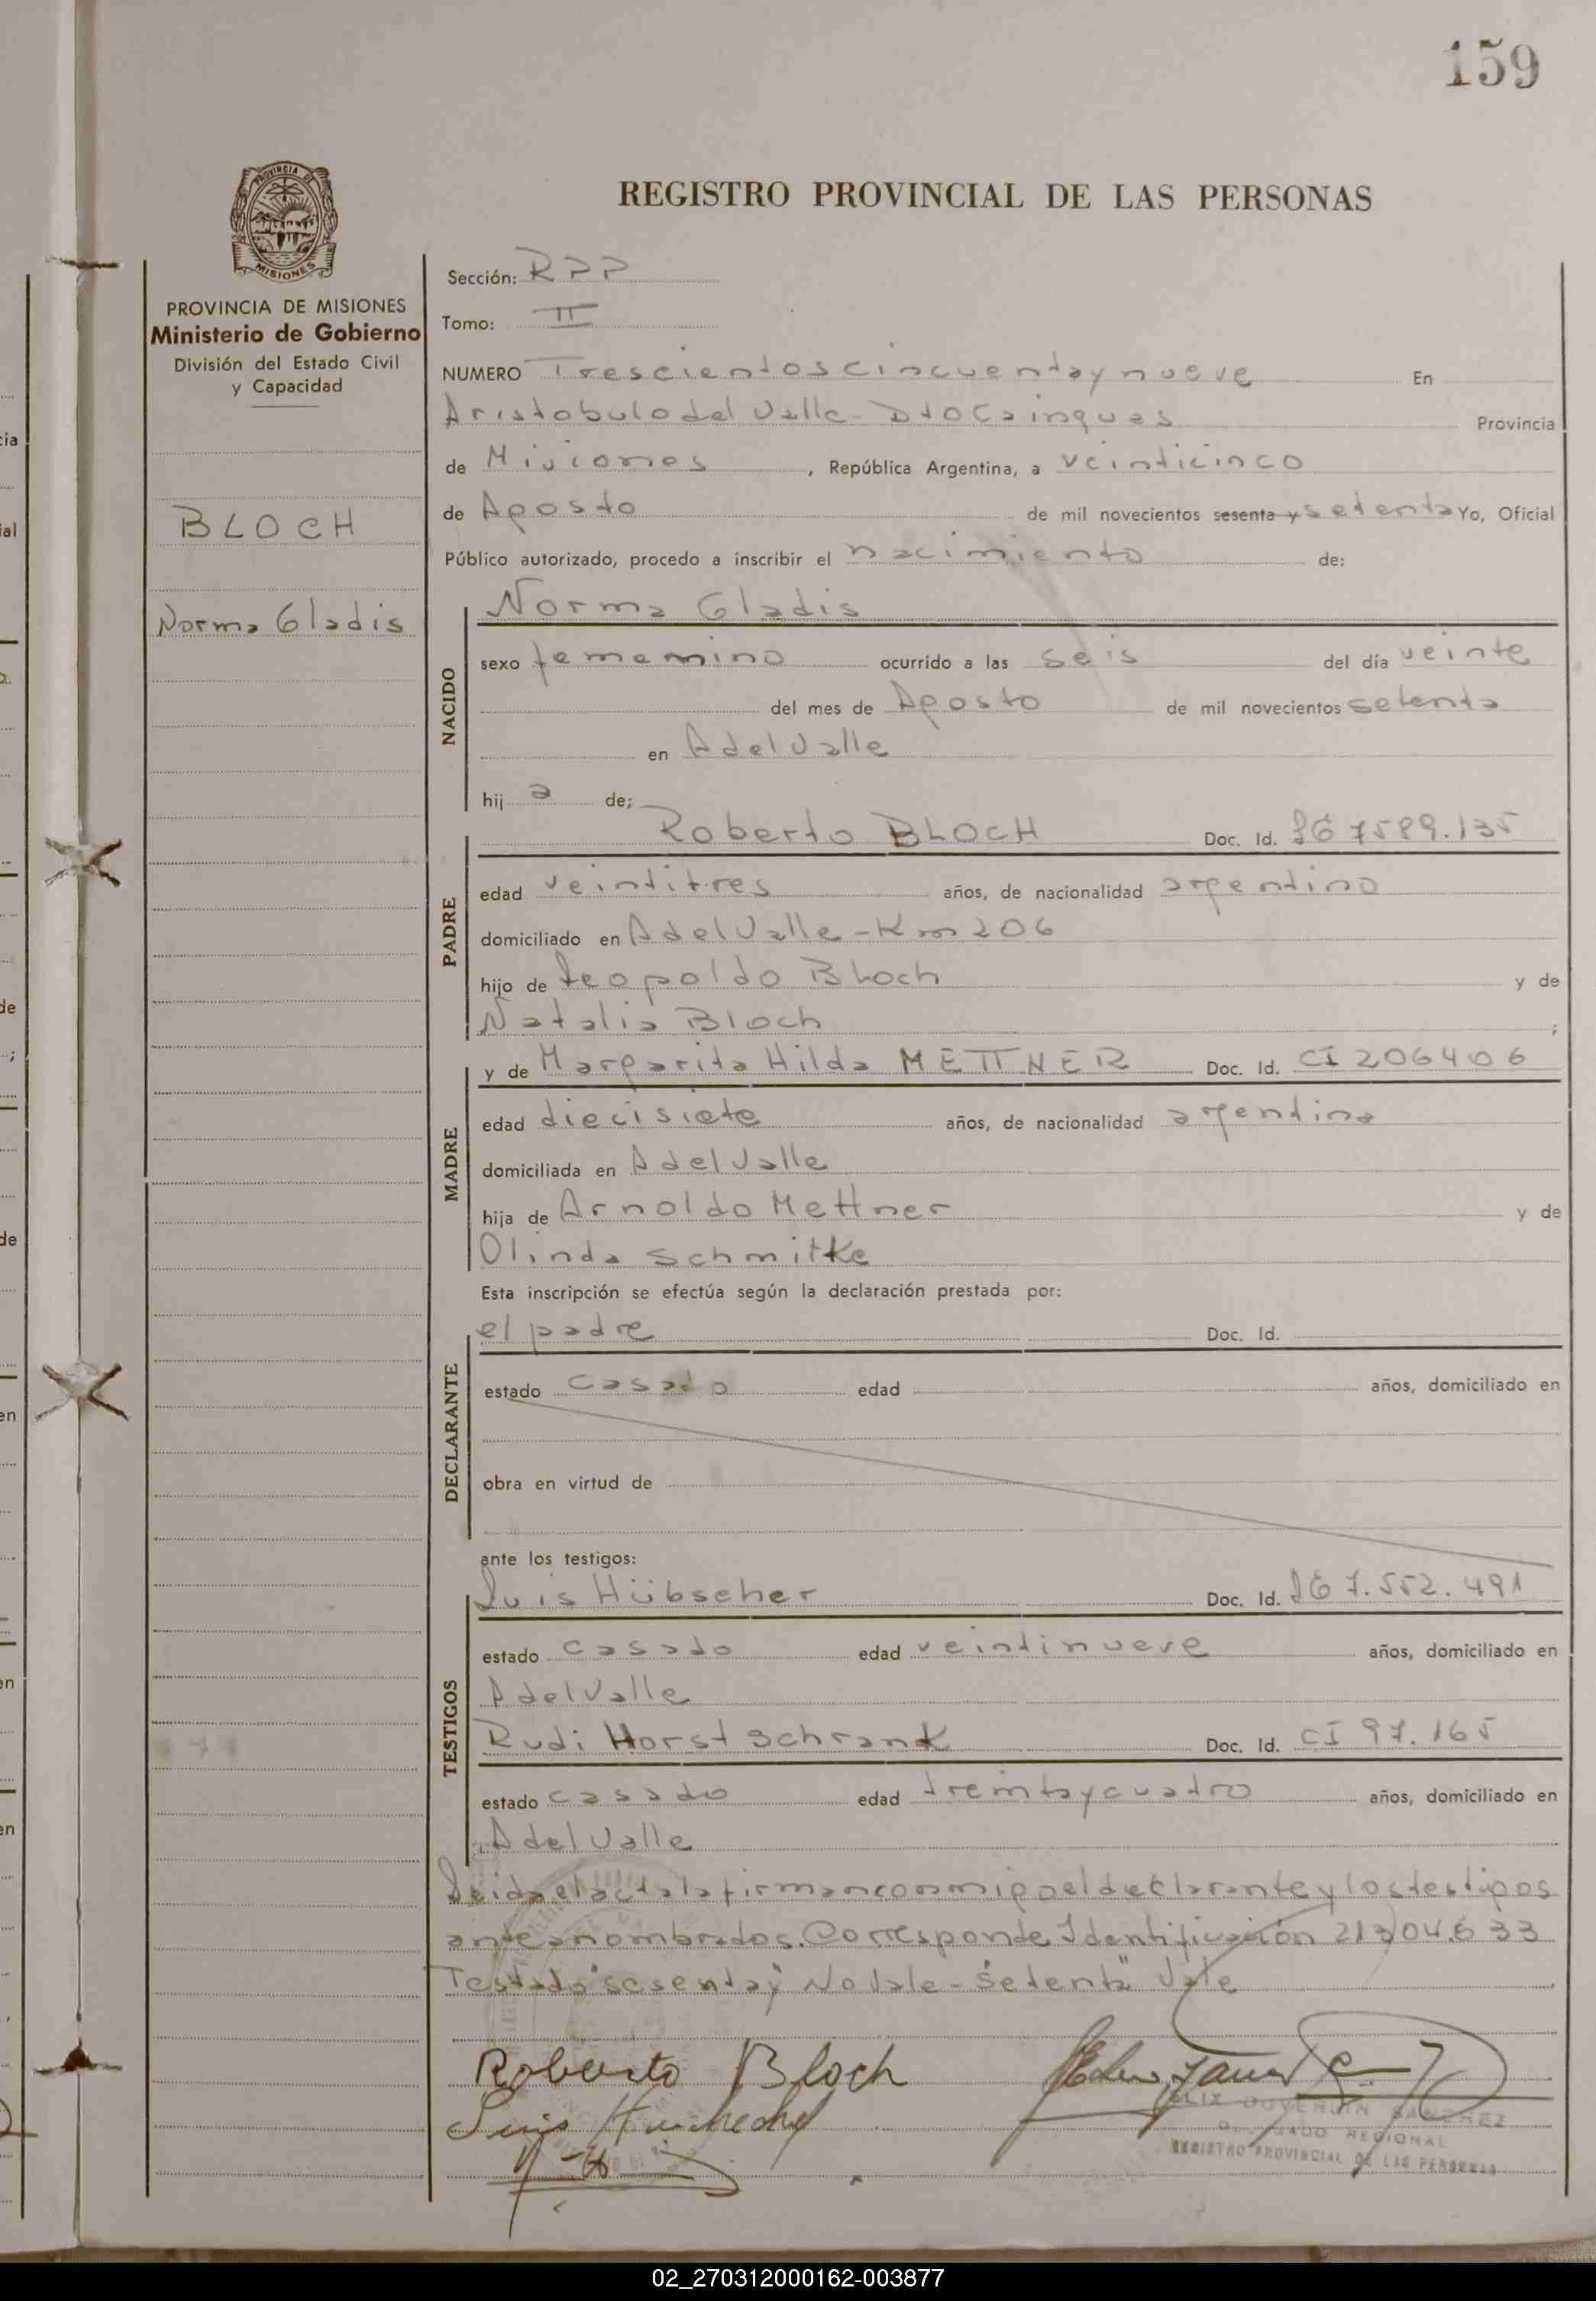 159
PROVINCIA DE
MISIONES
PROVINCIA DE MISIONES
Ministerio de Gobierno
División del Estado Civil
y Capacidad
BLOCH
Norma Gladis
REGISTRO PROVINCIAL DE LAS PERSONAS
Sección: RPP
Tomo: II
NUMERO Trescientos cincuenta y nueve En
Aristobulo del Valle - Dto Cainguas Provincia
de Misiones, República Argentina, a veinticinco
de Agosto de mil novecientos sesenta y setenta Yo, Oficial
Público autorizado, procedo a inscribir el nacimiento de:
NACIDO
Norma Gladis
sexo femenino ocurrido a las seis del día veinte
del mes de Agosto de mil novecientos setenta
en A del Valle
hij a de;
PADRE
Roberto BLOCH Doc. Id. 7589.135
edad veintitres años, de nacionalidad argentino
domiciliado en A del Valle - Km 206
hijo de Leopoldo Bloch y de
Natalia Bloch ;
MADRE
y de Margarita Hilda METTNER Doc. Id. CI 206406
edad diecisiete años, de nacionalidad argentina
domiciliada en A del Valle
hija de Arnoldo Mettner y de
Olinda Schmitke
Esta inscripción se efectúa según la declaración prestada por:
DECLARANTE
el padre Doc. Id.
estado casado edad años, domiciliado en
obra en virtud de
ante los testigos:
TESTIGOS
Luis Hübscher Doc. Id. 7.552.491
estado casado edad veintinueve años, domiciliado en
A del Valle
Rudi Horst Schrank Doc. Id. CI 97.165
estado casado edad treinta y cuatro años, domiciliado en
A del Valle
Leida el acta la firman conmigo el declarante y los testigos
antes nombrados. Corresponde Identificación 21304.633
Testado "sesenta y" No Vale - "Setenta" Vale
Roberto Bloch
Luis
SANCHEZ
REGIONAL
REGISTRO PROVINCIAL DE LAS PERSONAS
02_270312000162-003877